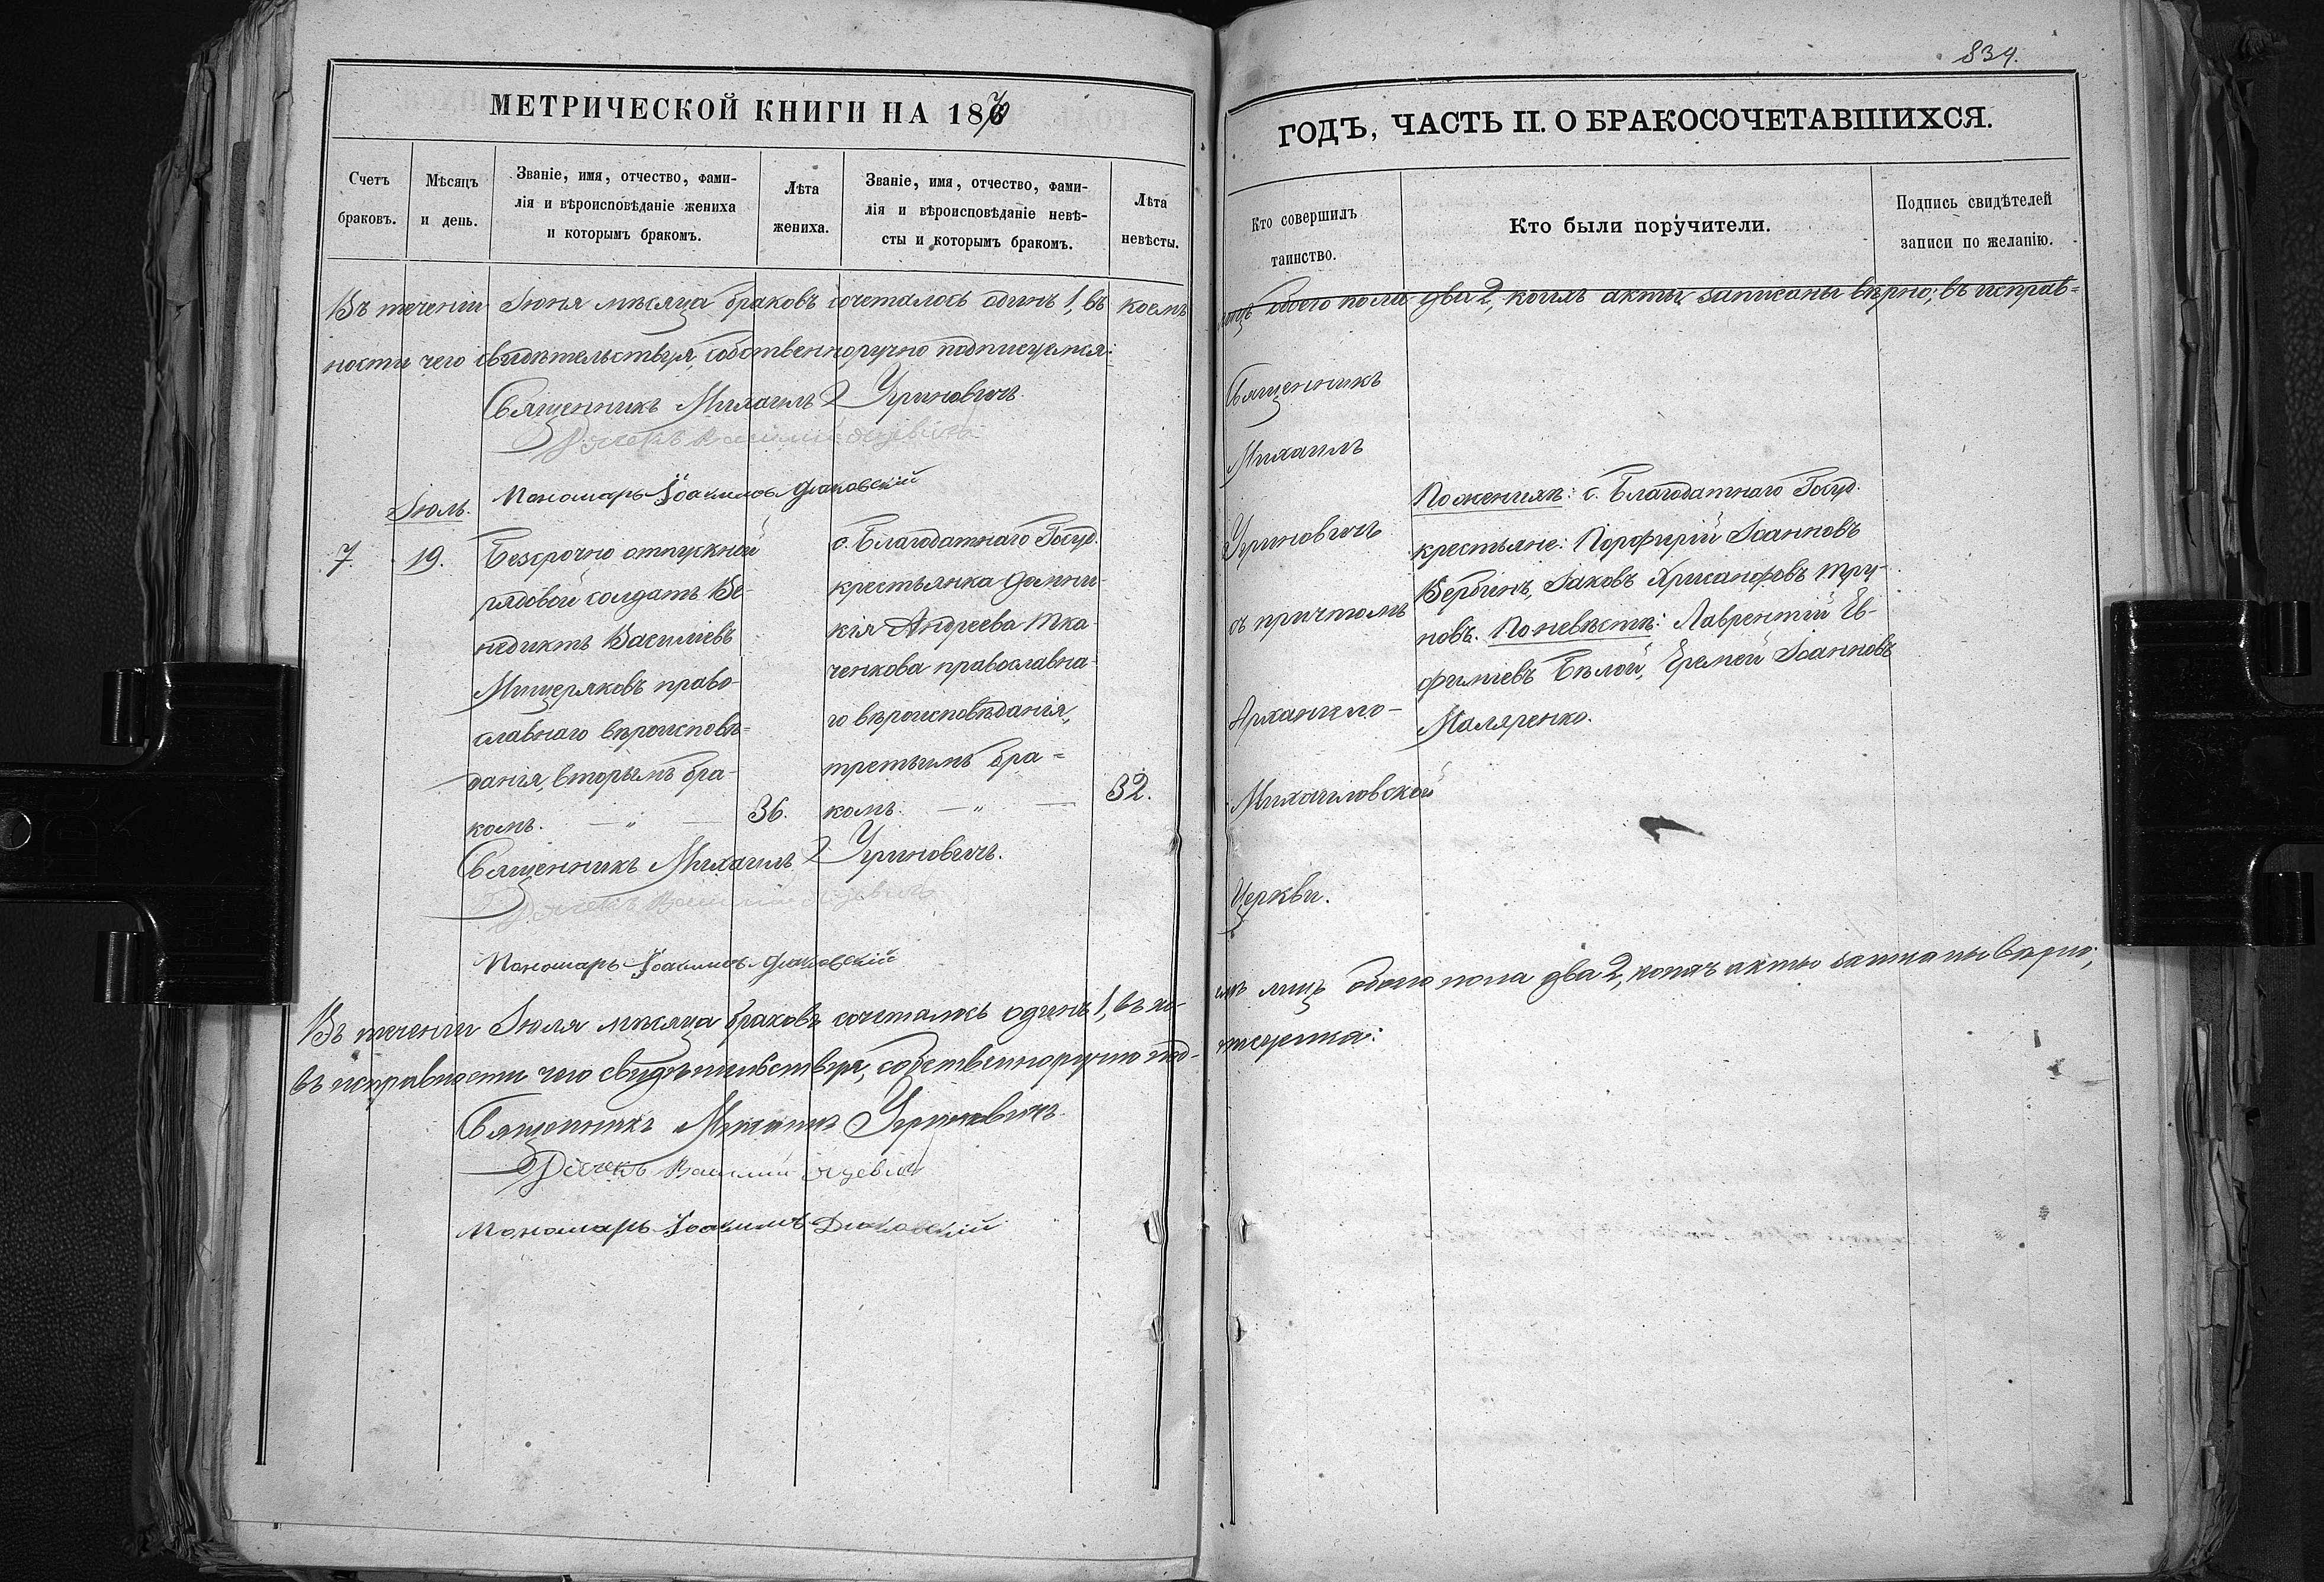 834.
МЕТРИЧЕСКОЙ КНИГИ НА 1870
ГОДЪ, ЧАСТЬ II. О БРАКОСОЧЕТАВШИХСЯ.
Счетъ
браковъ.
Мѣсяцъ
и день.
Званіе, имя, отчество, фами-
лія и вѣроисповѣданіе жениха
и которымъ бракомъ.
Лѣта
жениха.
Званіе, имя, отчество, фами-
лія и вѣроисповѣданіе невѣ-
сты и которымъ бракомъ.
Лѣта
невѣсты.
Кто совершилъ
таинство.
Кто были поручители.
Подпись свидѣтелей
записи по желанію.
Въ теченіи Іюня мѣсяца браковъ сочеталось одинъ 1, въ коемъ
лицъ обоего пола два 2, коихъ акты записаны вѣрно; въ исправ-
ности чего свидѣтельствуя, собственноручно подписуемся:
Священникъ Михаилъ Угриновичъ.
Дячекъ Василій
Пономарь Іоакимъ Дьяковскій
Іюль.
7.
19.
Безсрочно отпускной
рядовой солдатъ Ве-
недиктъ Василіевъ
Мищеряковъ право-
славнаго вѣроисповѣ-
данія, вторымъ бра-
комъ. — „ —
36.
с. Благодатнаго Госуд.
крестьянка Домни-
кія Андреева Тка-
ченкова православна-
го вѣроисповѣданія,
третьимъ бра-
комъ. — „ —
32.
Священникъ
Михаилъ
Угриновичъ
съ причтомъ
Архангело-
Михаиловской
Церкви.
По женихѣ: с. Благодатнаго Госуд.
крестьяне: Порфирій Іоанновъ
Вербинъ, Іаковъ Хрисанфовъ Тру-
новъ. По невѣстѣ: Лаврентій Ев-
фиміевъ Бѣлой, Еремей Іоанновъ
Маляренко.
Священникъ Михаилъ Угриновичъ.
Дячекъ Василій
Пономарь Іоакимъ Дьяковскій
Въ теченіи Іюля мѣсяца браковъ сочеталось одинъ 1, въ ко-
емъ лицъ обоего пола два 2, коихъ акты записаны вѣрно;
въ исправности чего свидѣтельствуя, собственноручно под-
писуемся:
Священникъ Михаилъ Угриновичъ
Дячекъ Василій
Пономарь Іоакимъ Дьяковскій